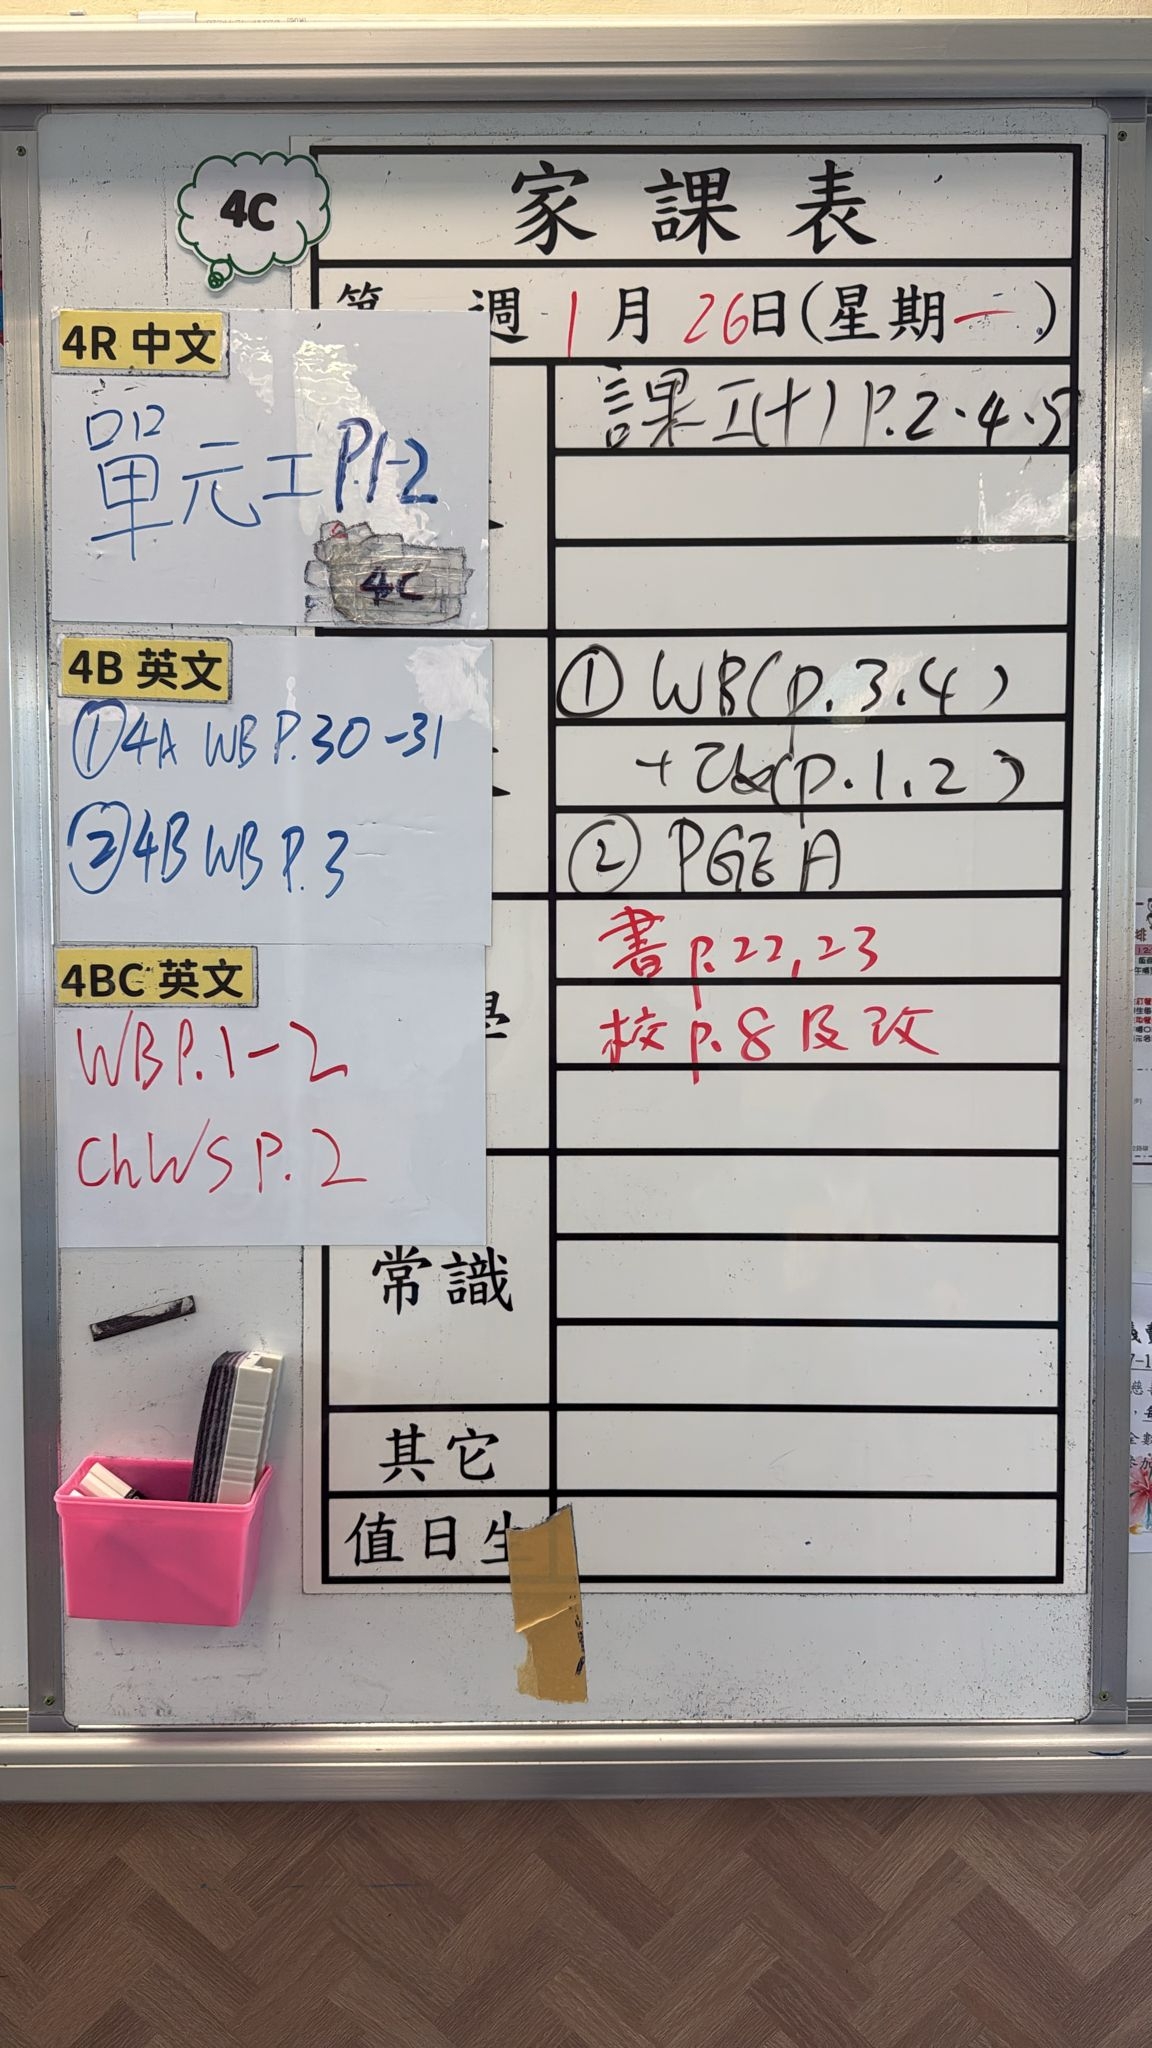 4C
家課表
第 週 1月26日(星期一)
4R 中文
單元工P.1-2
4C
4B 英文
①4A WB P.30-31
②4B WB P.3
4BC 英文
WB P.1-2
ChWS P.2
課工(十) P.2.4.5
① WB(p.3.4)
(p.1.2)
② PGE A
學
書 p.22,23
校 p.8 及改
常識
其它
值日生